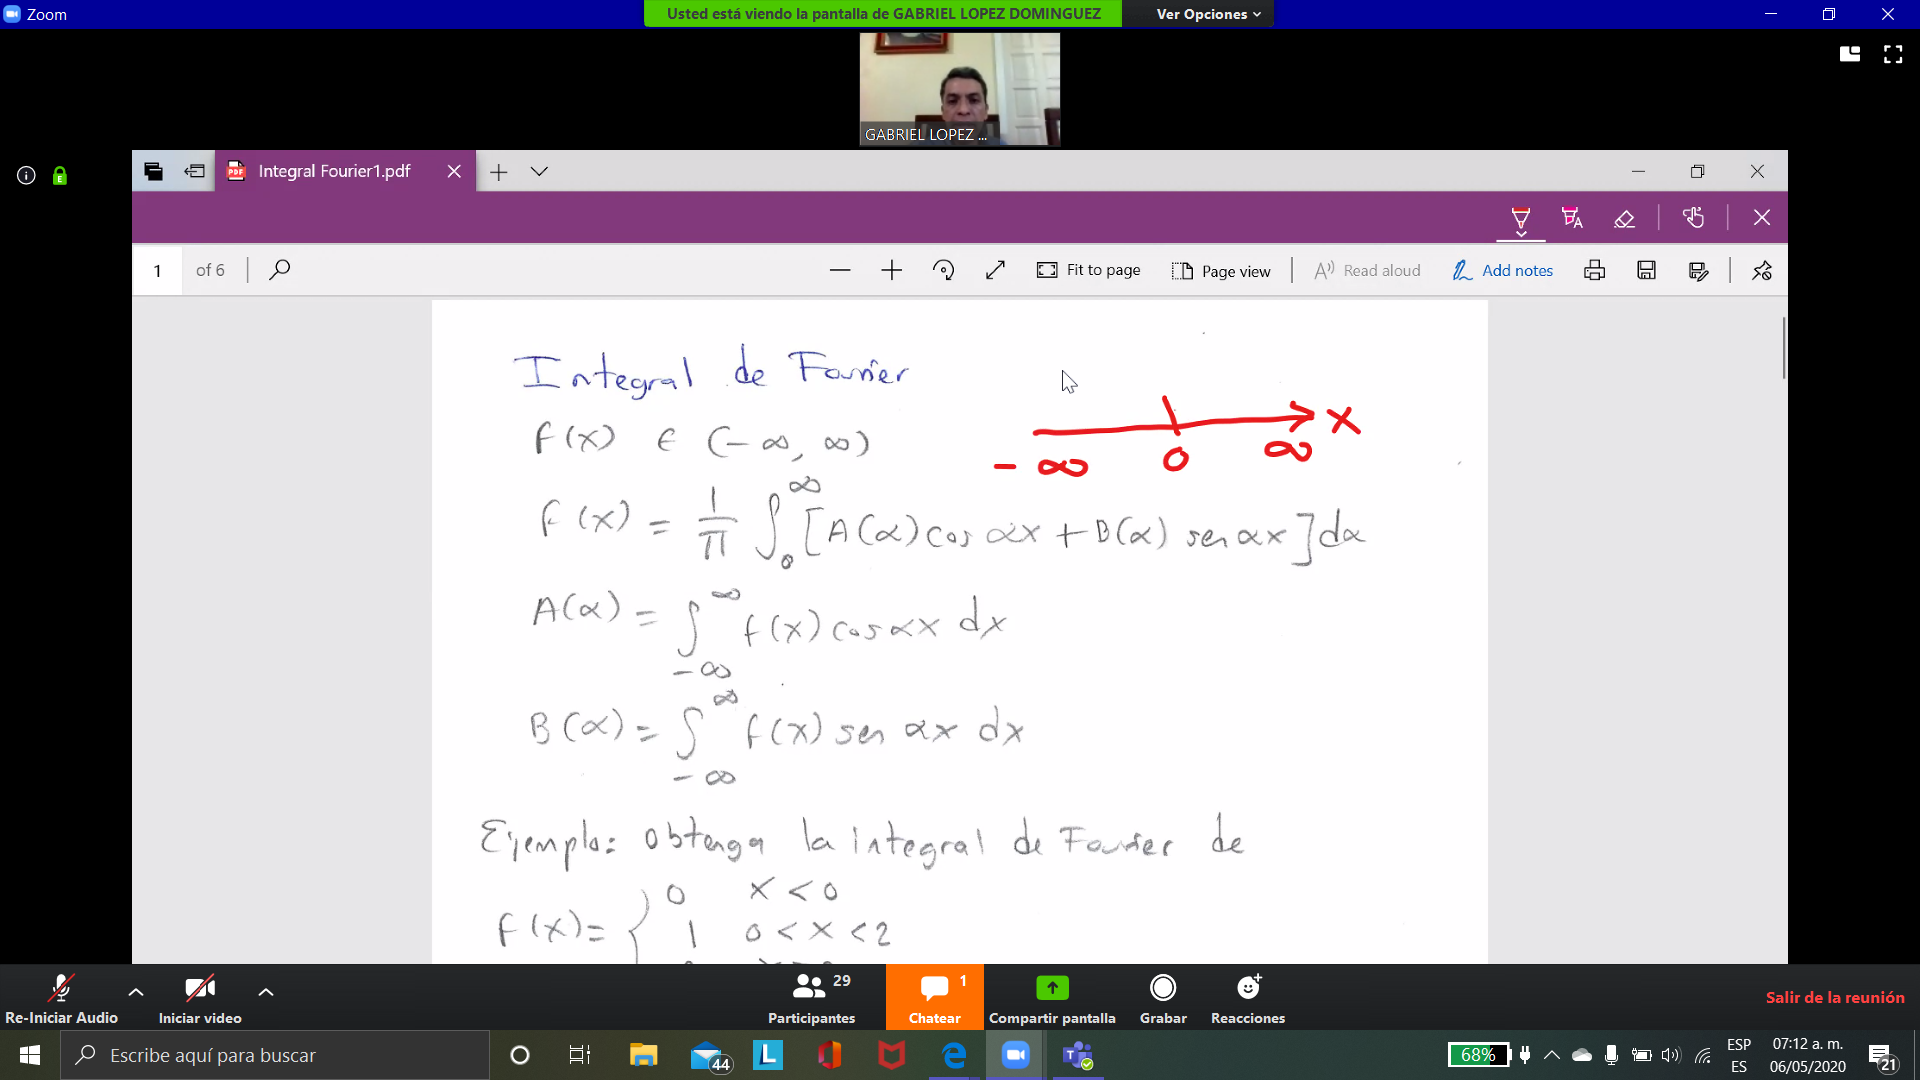 Zoom
Usted está viendo la pantalla de GABRIEL LOPEZ DOMINGUEZ
Ver Opciones
GABRIEL LOPEZ ...
Integral Fourier1.pdf
1 of 6
Fit to page
Page view
Read aloud
Add notes
Integral de Fourier
f(x) ∈ (-∞, ∞)
-∞ 0 ∞ x
f(x) = 1/π ∫₀^∞ [A(α) cos αx + B(α) sen αx] dα
A(α) = ∫_{-∞}^∞ f(x) cos αx dx
B(α) = ∫_{-∞}^∞ f(x) sen αx dx
Ejemplo: Obtenga la integral de Fourier de
f(x) = { 0 x < 0
1 0 < x < 2
Re-Iniciar Audio
Iniciar video
Participantes 29
Chatear 1
Compartir pantalla
Grabar
Reacciones
Salir de la reunión
Escribe aquí para buscar
44
L
68%
ESP
ES
07:12 a. m.
06/05/2020
21